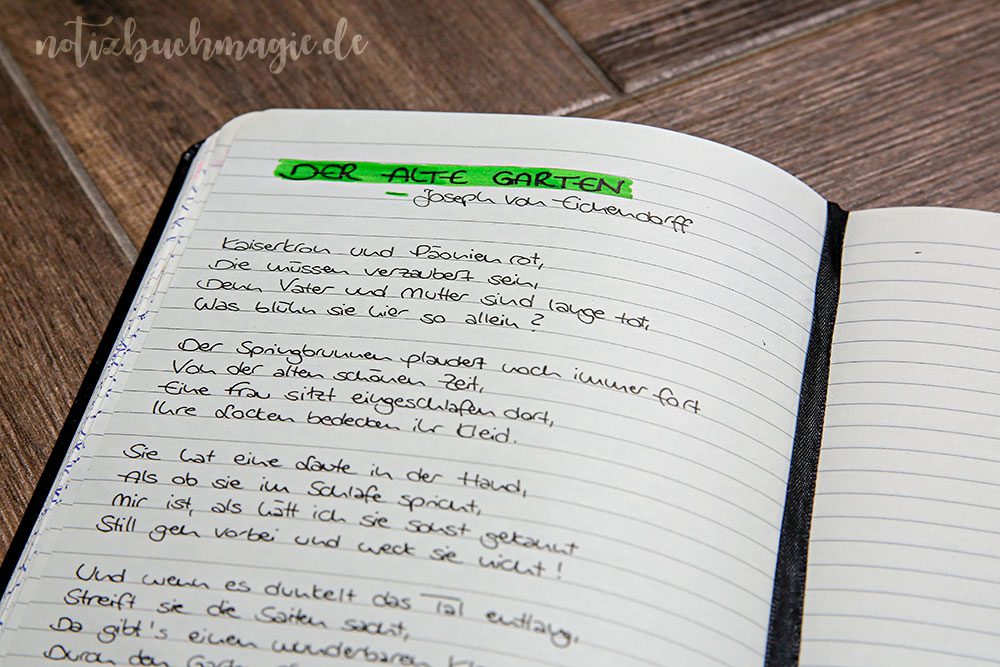 notizbuchmagie.de
DER ALTE GARTEN
- Joseph von Eichendorff
Kaiserkron und Päonien rot,
Die müssen verzaubert sein,
Denn Vater und Mutter sind lange tot,
Was blühn sie hier so allein?
Der Springbrunnen plaudert noch immer fort
Von der alten schönen Zeit,
Eine Frau sitzt eingeschlafen dort,
Ihre Locken bedecken ihr Kleid.
Sie hat eine Laute in der Hand,
Als ob sie im Schlafe spricht,
Mir ist, als hätt ich sie sonst gekannt
Still geh vorbei und weck sie nicht!
Und wenn es dunkelt das Tal entlang,
Streift sie die Saiten sacht,
Da gibt's einen wunderbaren
Durch den